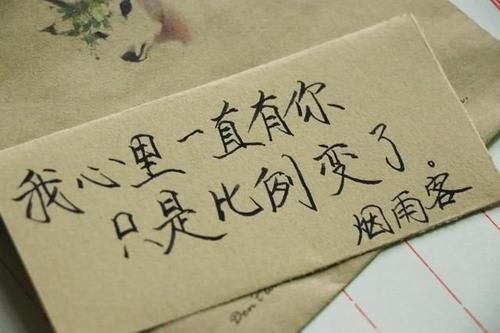 我心里一直有你
只是比例变了。
烟雨客
Don't